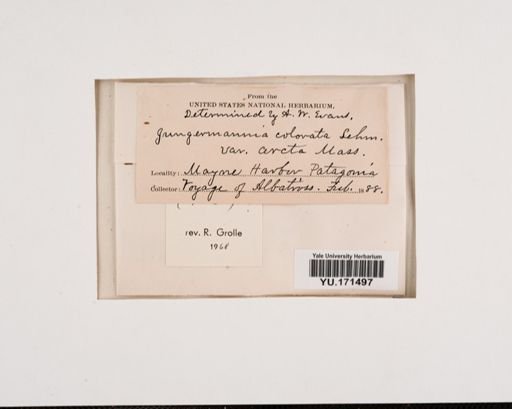 From the
UNITED STATES NATIONAL HERBARIUM.
Determined by A. W. Evans.
Jungermannia colorata Lehm.
var. arcta Mass.
Locality: Mayne Harbor Patagonia
Collector: Voyage of Albatross. Feb. 1888.
rev. R. Grolle
1968
Yale University Herbarium
YU.171497